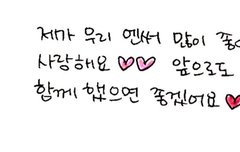 제가 우리 엔써 많이 좋
사랑해요 ♡♡ 앞으로도
함께 했으면 좋겠어요 ♡